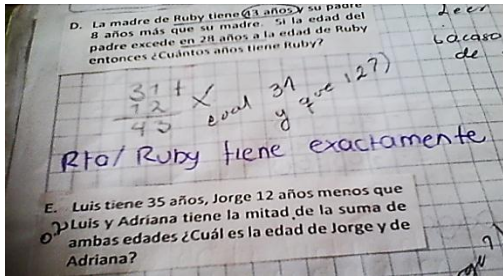 D. La madre de Ruby tiene 43 años y su padre
8 años más que su madre. Si la edad del
padre excede en 28 años a la edad de Ruby
entonces ¿Cuántos años tiene Ruby?
Leer
acaso
de
31 +
12
43
cual 31
y que 12?)
Rta/ Ruby tiene exactamente
E. Luis tiene 35 años, Jorge 12 años menos que
Luis y Adriana tiene la mitad de la suma de
ambas edades ¿Cuál es la edad de Jorge y de
Adriana?